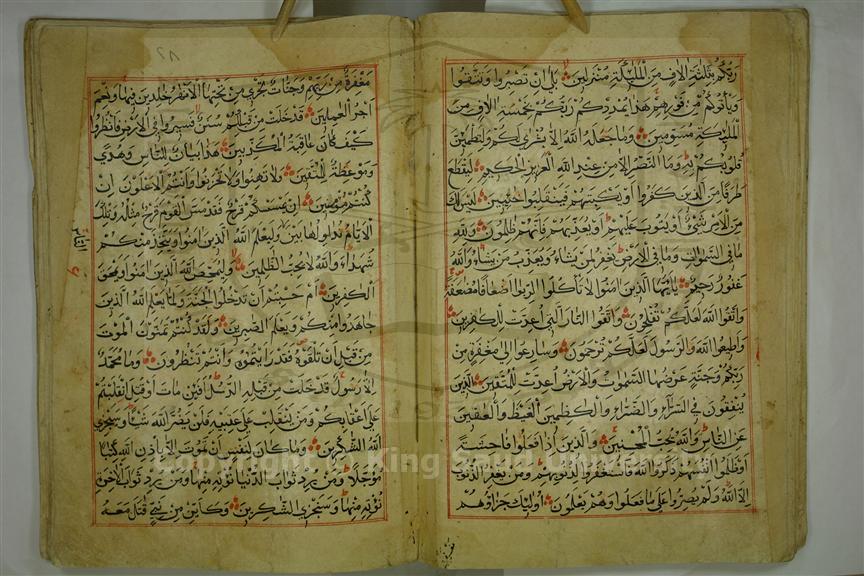 ربكم بثلثة الاف من الملئكة منزلين بلى ان تصبروا وتتقوا
وياتوكم من فورهم هذا يمددكم ربكم بخمسة الاف من
الملئكة مسومين وما جعله الله الا بشرى لكم ولتطمئن
قلوبكم به وما النصر الا من عند الله العزيز الحكيم ليقطع
طرفا من الذين كفروا او يكبتهم فينقلبوا خائبين ليس لك
من الامر شئ او يتوب عليهم او يعذبهم فانهم ظلمون ولله
ما فى السموات وما فى الارض يغفر لمن يشاء ويعذب من يشاء والله
غفور رحيم يايها الذين امنوا لا تاكلوا الربوا اضعافا مضعفة
واتقوا الله لعلكم تفلحون واتقوا النار التى اعدت للكفرين
واطيعوا الله والرسول لعلكم ترحمون وسارعوا الى مغفرة من
ربكم وجنة عرضها السموات والارض اعدت للمتقين الذين
ينفقون فى السراء والضراء والكظمين الغيظ والعافين
عن الناس والله يحب المحسنين والذين اذا فعلوا فاحشة
او ظلموا انفسهم ذكروا الله فاستغفروا لذنوبهم ومن يغفر الذنوب
الا الله ولم يصروا على ما فعلوا وهم يعلمون اولئك جزاؤهم
مغفرة من ربهم وجنات تجرى من تحتها الانهر خلدين فيها ونعم
اجر العملين قد خلت من قبلكم سنن فسيروا فى الارض فانظروا
كيف كان عاقبة المكذبين هذا بيان للناس وهدى
وموعظة للمتقين ولا تهنوا ولا تحزنوا وانتم الاعلون ان
كنتم مؤمنين ان يمسسكم قرح فقد مس القوم قرح مثله وتلك
الايام نداولها بين الناس وليعلم الله الذين امنوا ويتخذ منكم
شهداء والله لا يحب الظلمين وليمحص الله الذين امنوا ويمحق
الكفرين ام حسبتم ان تدخلوا الجنة ولما يعلم الله الذين
جاهدوا منكم ويعلم الصبرين ولقد كنتم تمنون الموت
من قبل ان تلقوه فقد رايتموه وانتم تنظرون وما محمد
الا رسول قد خلت من قبله الرسل افئن مات او قتل انقلبتم
على اعقابكم ومن ينقلب على عقبيه فلن يضر الله شيئا وسيجزى
الله الشكرين وما كان لنفس ان تموت الا باذن الله كتابا
مؤجلا ومن يرد ثواب الدنيا نؤته منها ومن يرد ثواب الاخرة
نؤته منها وسنجزى الشكرين وكاين من نبى قتل معه
Copyright © King Saud University